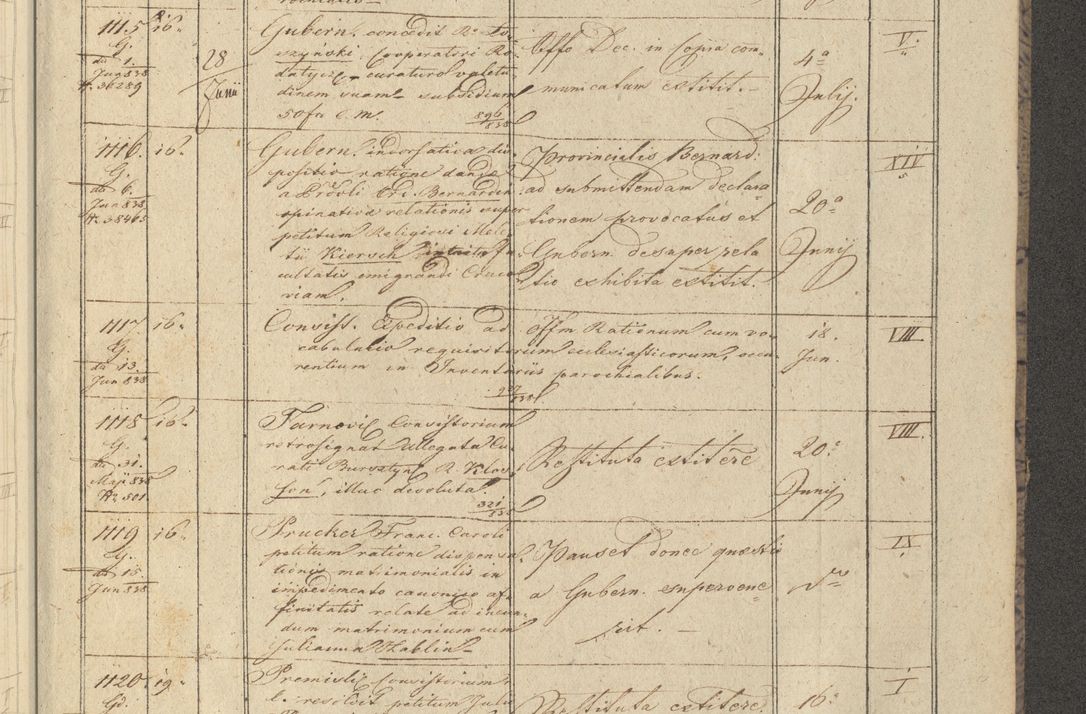 1115 16.
G.
do 1.
Jun 838
N. 36289
28
Junii
Gubern. concedit Ro
szyński Cooperatori Ro
datycze curaturo valetu
dinem suam subsidium
50 fr c. m.
896/838
Offo Dec. in Copia com
municatum extitit. –
4a
Julij.
V.
1116. 16.
G.
do 6.
Jun 838
N. 38465
Gubern. indorsatica dis
positio ratione dandae
a Provli Bernardin
opinativae relationis super
petitum Religiosi Mele
tii Kiersch intuitu fa
cultatis emigrandi Craco
viam.
Provincialis Bernard:
ad submittendam declara
tionem provocatus et
Gubern. desuper rela
tio exhibita extitit.
20a
Junij
XIV
5
1117. 16.
G.
do 13.
Jun 838
Consist. Expeditio ad Offm Rationum cum vo
cabulario requisitorum ecclesiasticorum, occu
rentium in Inventariis parochialibus.
18.
Jun.
VIII
1118 16.
G.
do 31.
Maji 838
N. 501.
Tarnovic Consistorium
retrosignat allegata Cu
rati Bursztyn R.
son, illuc devoluta.
321/838
Restituta extitere
20.
Junij
VIII.
1119 16.
G.
do 15.
Jun 838
Prucker Franc. Caroli
petitum ratione dispensa
tionis matrimonialis in
impedimento canonico af
finitatis relate ad ineun
dum matrimonium cum
Julianna Zablin
Pauset donec quaestio
a Gubern. supervene
rit. –
do
IX
1120. 19.
Gd.
Premisl. Consistorium
petitum Julii
Restituta extitere.
16.
I